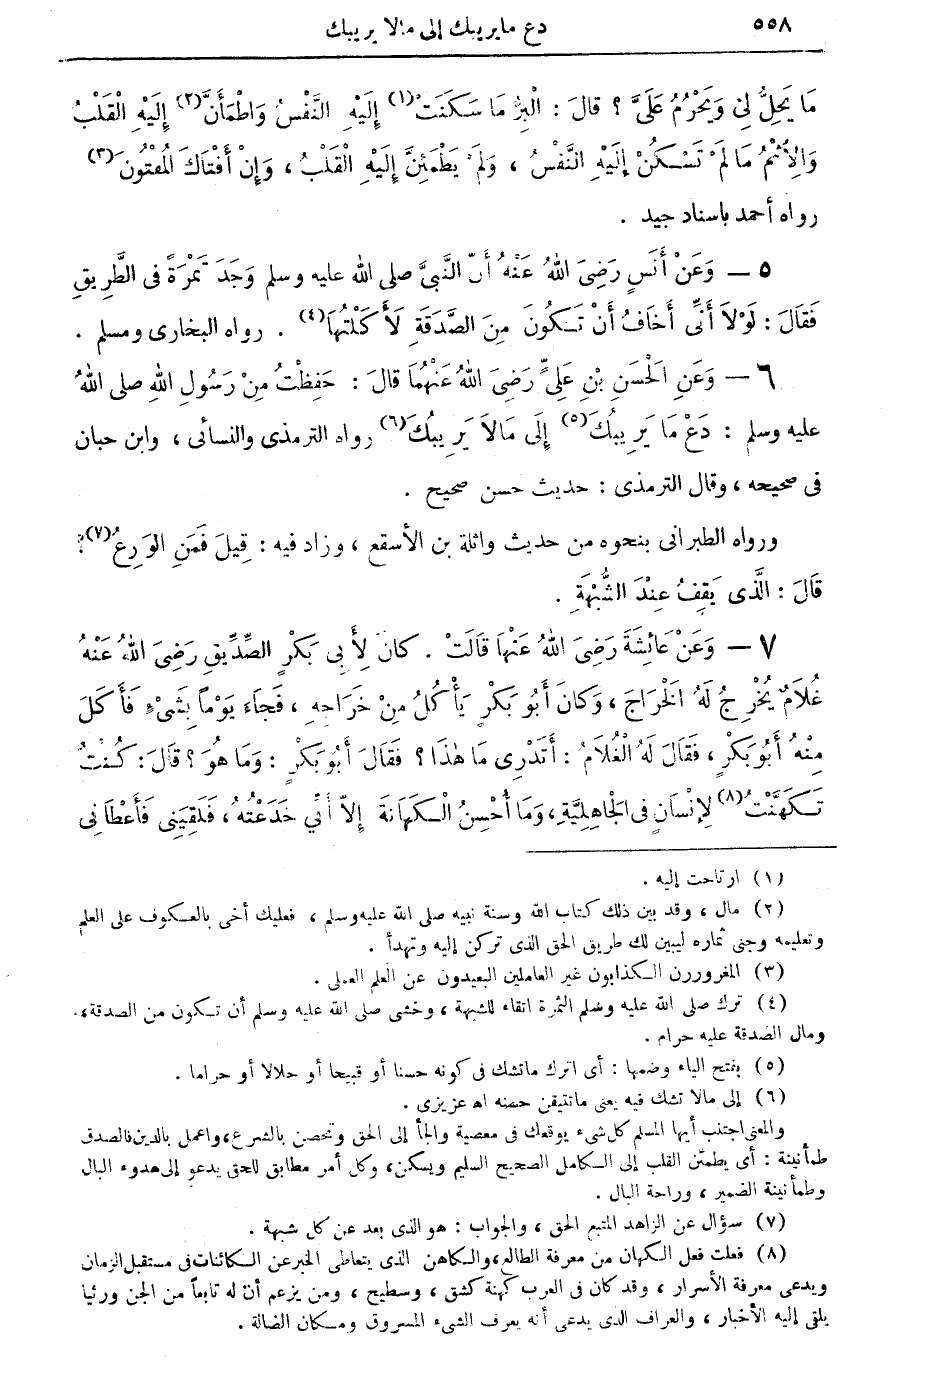 ٥٥٨ دع ما يريبك إلى ما لا يريبك
مَا يَحِلُّ لِي وَيَحْرُمُ عَلَيَّ ؟ قالَ : الْبِرُّ مَا سَكَنَتْ(١) إِلَيْهِ النَّفْسُ وَاطْمَأَنَّ(٢) إِلَيْهِ الْقَلْبُ
وَالْإِثْمُ مَا لَمْ تَسْكُنْ إِلَيْهِ النَّفْسُ ، وَلَمْ يَطْمَئِنَّ إِلَيْهِ الْقَلْبُ ، وَإِنْ أَفْتَاكَ الْمُفْتُونَ(٣)
رواه أحمد باسناد جيد .
٥ — وَعَنْ أَنَسٍ رَضِيَ اللهُ عَنْهُ أَنَّ النَّبِيَّ صلى الله عليه وسلم وَجَدَ تَمْرَةً فى الطَّرِيقِ
فَقَالَ : لَوْلاَ أَنِّى أَخَافُ أَنْ تَكُونَ مِنَ الصَّدَقَةِ لَأَكَلْتُهَا(٤) . رواه البخارى ومسلم .
٦ — وَعَنِ الْحَسَنِ بْنِ عَلِيٍّ رَضِيَ اللهُ عَنْهُمَا قالَ : حَفِظْتُ مِنْ رَسُولِ اللهِ صلى اللهُ
عليه وسلم : دَعْ مَا يَرِيبُكَ(٥) إِلَى مَالاَ يَرِيبُكَ(٦) رواه الترمذى والنسائى ، وابن حبان
فى صحيحه ، وقال الترمذى : حديث حسن صحيح .
ورواه الطبرانى بنحوه من حديث واثلة بن الأسقع ، وزاد فيه : قِيلَ فَمَنِ الْوَرِعُ(٧) ؟
قَالَ : الَّذى يَقِفُ عِنْدَ الشُّبْهَةِ .
٧ — وَعَنْ عَائِشَةَ رَضِيَ اللهُ عَنْهَا قَالَتْ . كانَ لِأَبِى بَكْرٍ الصِّدِّيقِ رَضِيَ اللهُ عَنْهُ
غُلَامٌ يُخْرِجُ لَهُ الْخَرَاجَ ، وَكَانَ أَبُو بَكْرٍ يَأْكُلُ مِنْ خَرَاجِهِ ، فَجَاءَ يَوْماً بِشَىْءٍ فَأَكَلَ
مِنْهُ أَبُو بَكْرٍ ، فَقَالَ لَهُ الْغُلَامُ : أَتَدْرِى مَا هٰذَا ؟ فَقَالَ أَبُو بَكْرٍ : وَمَا هُوَ ؟ قَالَ : كُنْتُ
تَكَهَّنْتُ(٨) لِإِنْسَانٍ فى الْجَاهِلِيَّةِ، وَمَا أُحْسِنُ الْكَهَانَةَ إِلاَّ أَنِّي خَدَعْتُهُ ، فَلَقِيَنِى فَأَعْطَانِى
(١) ارتاحت إليه .
(٢) مال ، وقد بين ذلك كتاب الله وسنة نبيه صلى الله عليه وسلم ، فعليك أخى بالعكوف على العلم
وتعليمه وجنى ثماره ليبين لك طريق الحق الذى تركن إليه وتهدأ .
(٣) المغرورون الكذابون غير العاملين البعيدون عن العلم العملى .
(٤) ترك صلى الله عليه وسلم الثمرة اتقاء للشبهة ، وخشى صلى الله عليه وسلم أن تكون من الصدقة،
ومال الصدقة عليه حرام .
(٥) بفتح الياء وضمها : أى اترك ماتشك فى كونه حسنا أو قبيحا أو حلالا أو حراما .
(٦) إلى مالا تشك فيه يعنى ماتتيقن حسنه اه عزيزى .
والمعنى اجتنب أيها المسلم كل شىء يوقعك فى معصية والجأ إلى الحق وتحصن بالشرع، واعمل بالدين فالصدق
طمأنينة : أى يطمئن القلب إلى الكامل الصحيح السليم ويسكن، وكل أمر مطابق للحق يدعو إلى هدوء البال
وطمأنينة الضمير ، وراحة البال .
(٧) سؤال عن الزاهد المتبع الحق ، والجواب : هو الذى بعد عن كل شبهة .
(٨) فعلت فعل الكهان من معرفة الطالع، والكاهن الذى يتعاطى الخبر عن الكائنات فى مستقبل الزمان
ويدعى معرفة الأسرار ، وقد كان فى العرب كهنة كشق ، وسطيح ، ومن يزعم أن له تابعاً من الجن ورئيا
يلقى إليه الأخبار ، والعراف الذى يدعى أنه يعرف الشىء المسروق ومكان الضالة .